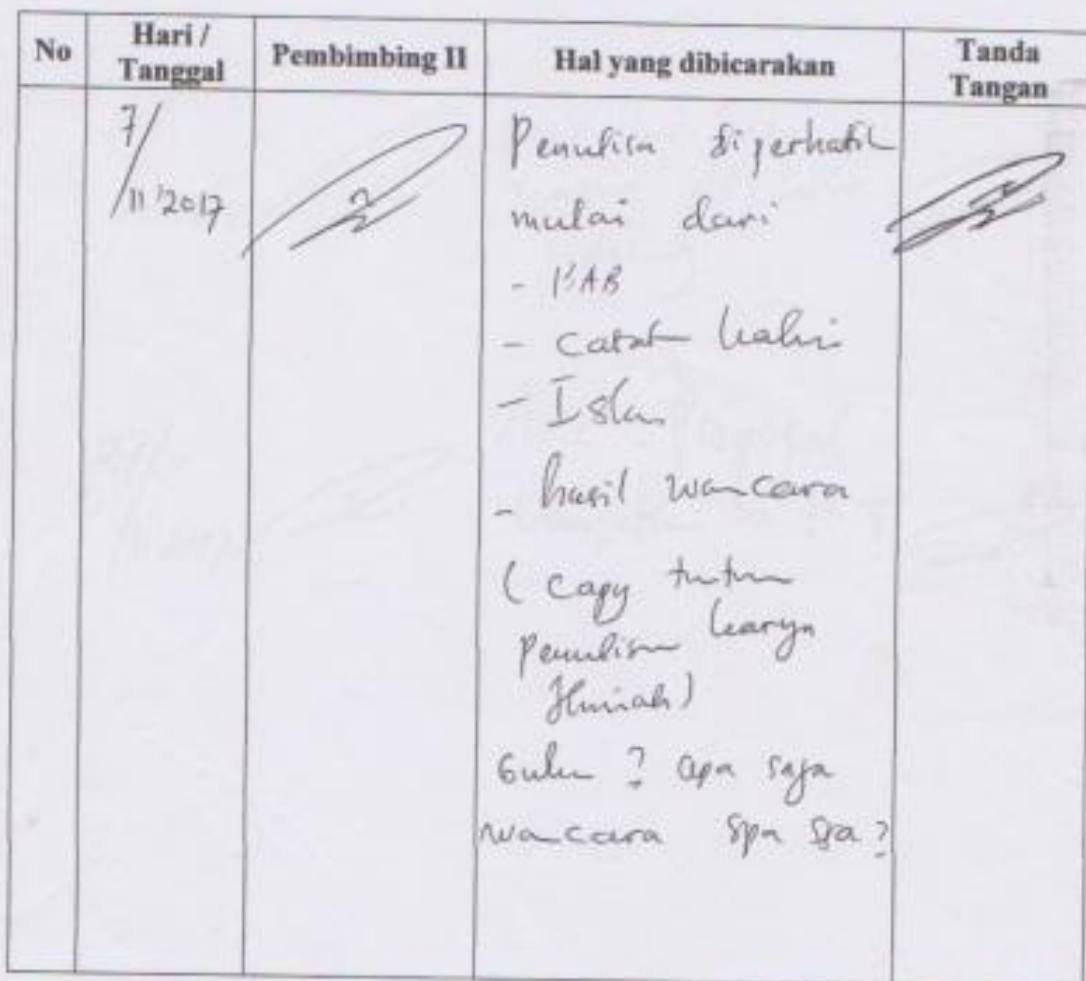 No
Hari /
Tanggal
Pembimbing II
Hal yang dibicarakan
Tanda
Tangan
7/
/11'2017
Penulisa diperhatik
mulai dari
- BAB
- catat kaki
- Islam
- hasil wancara
( Copy tuntun
Penulisan karya
Ilmiah)
Buku ? apa saja
wancara spa spa ?